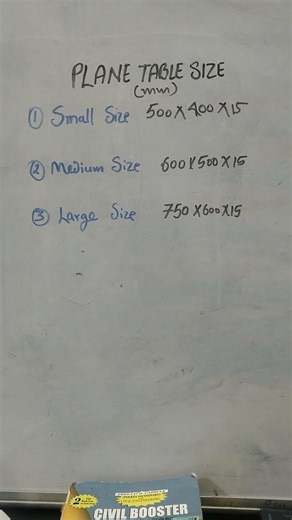 PLANE TABLE SIZE
(mm)
① Small Size 500 X 400 X 15
② Medium Size 600 X 500 X 15
③ Large Size 750 X 600 X 15
CIVIL BOOSTER